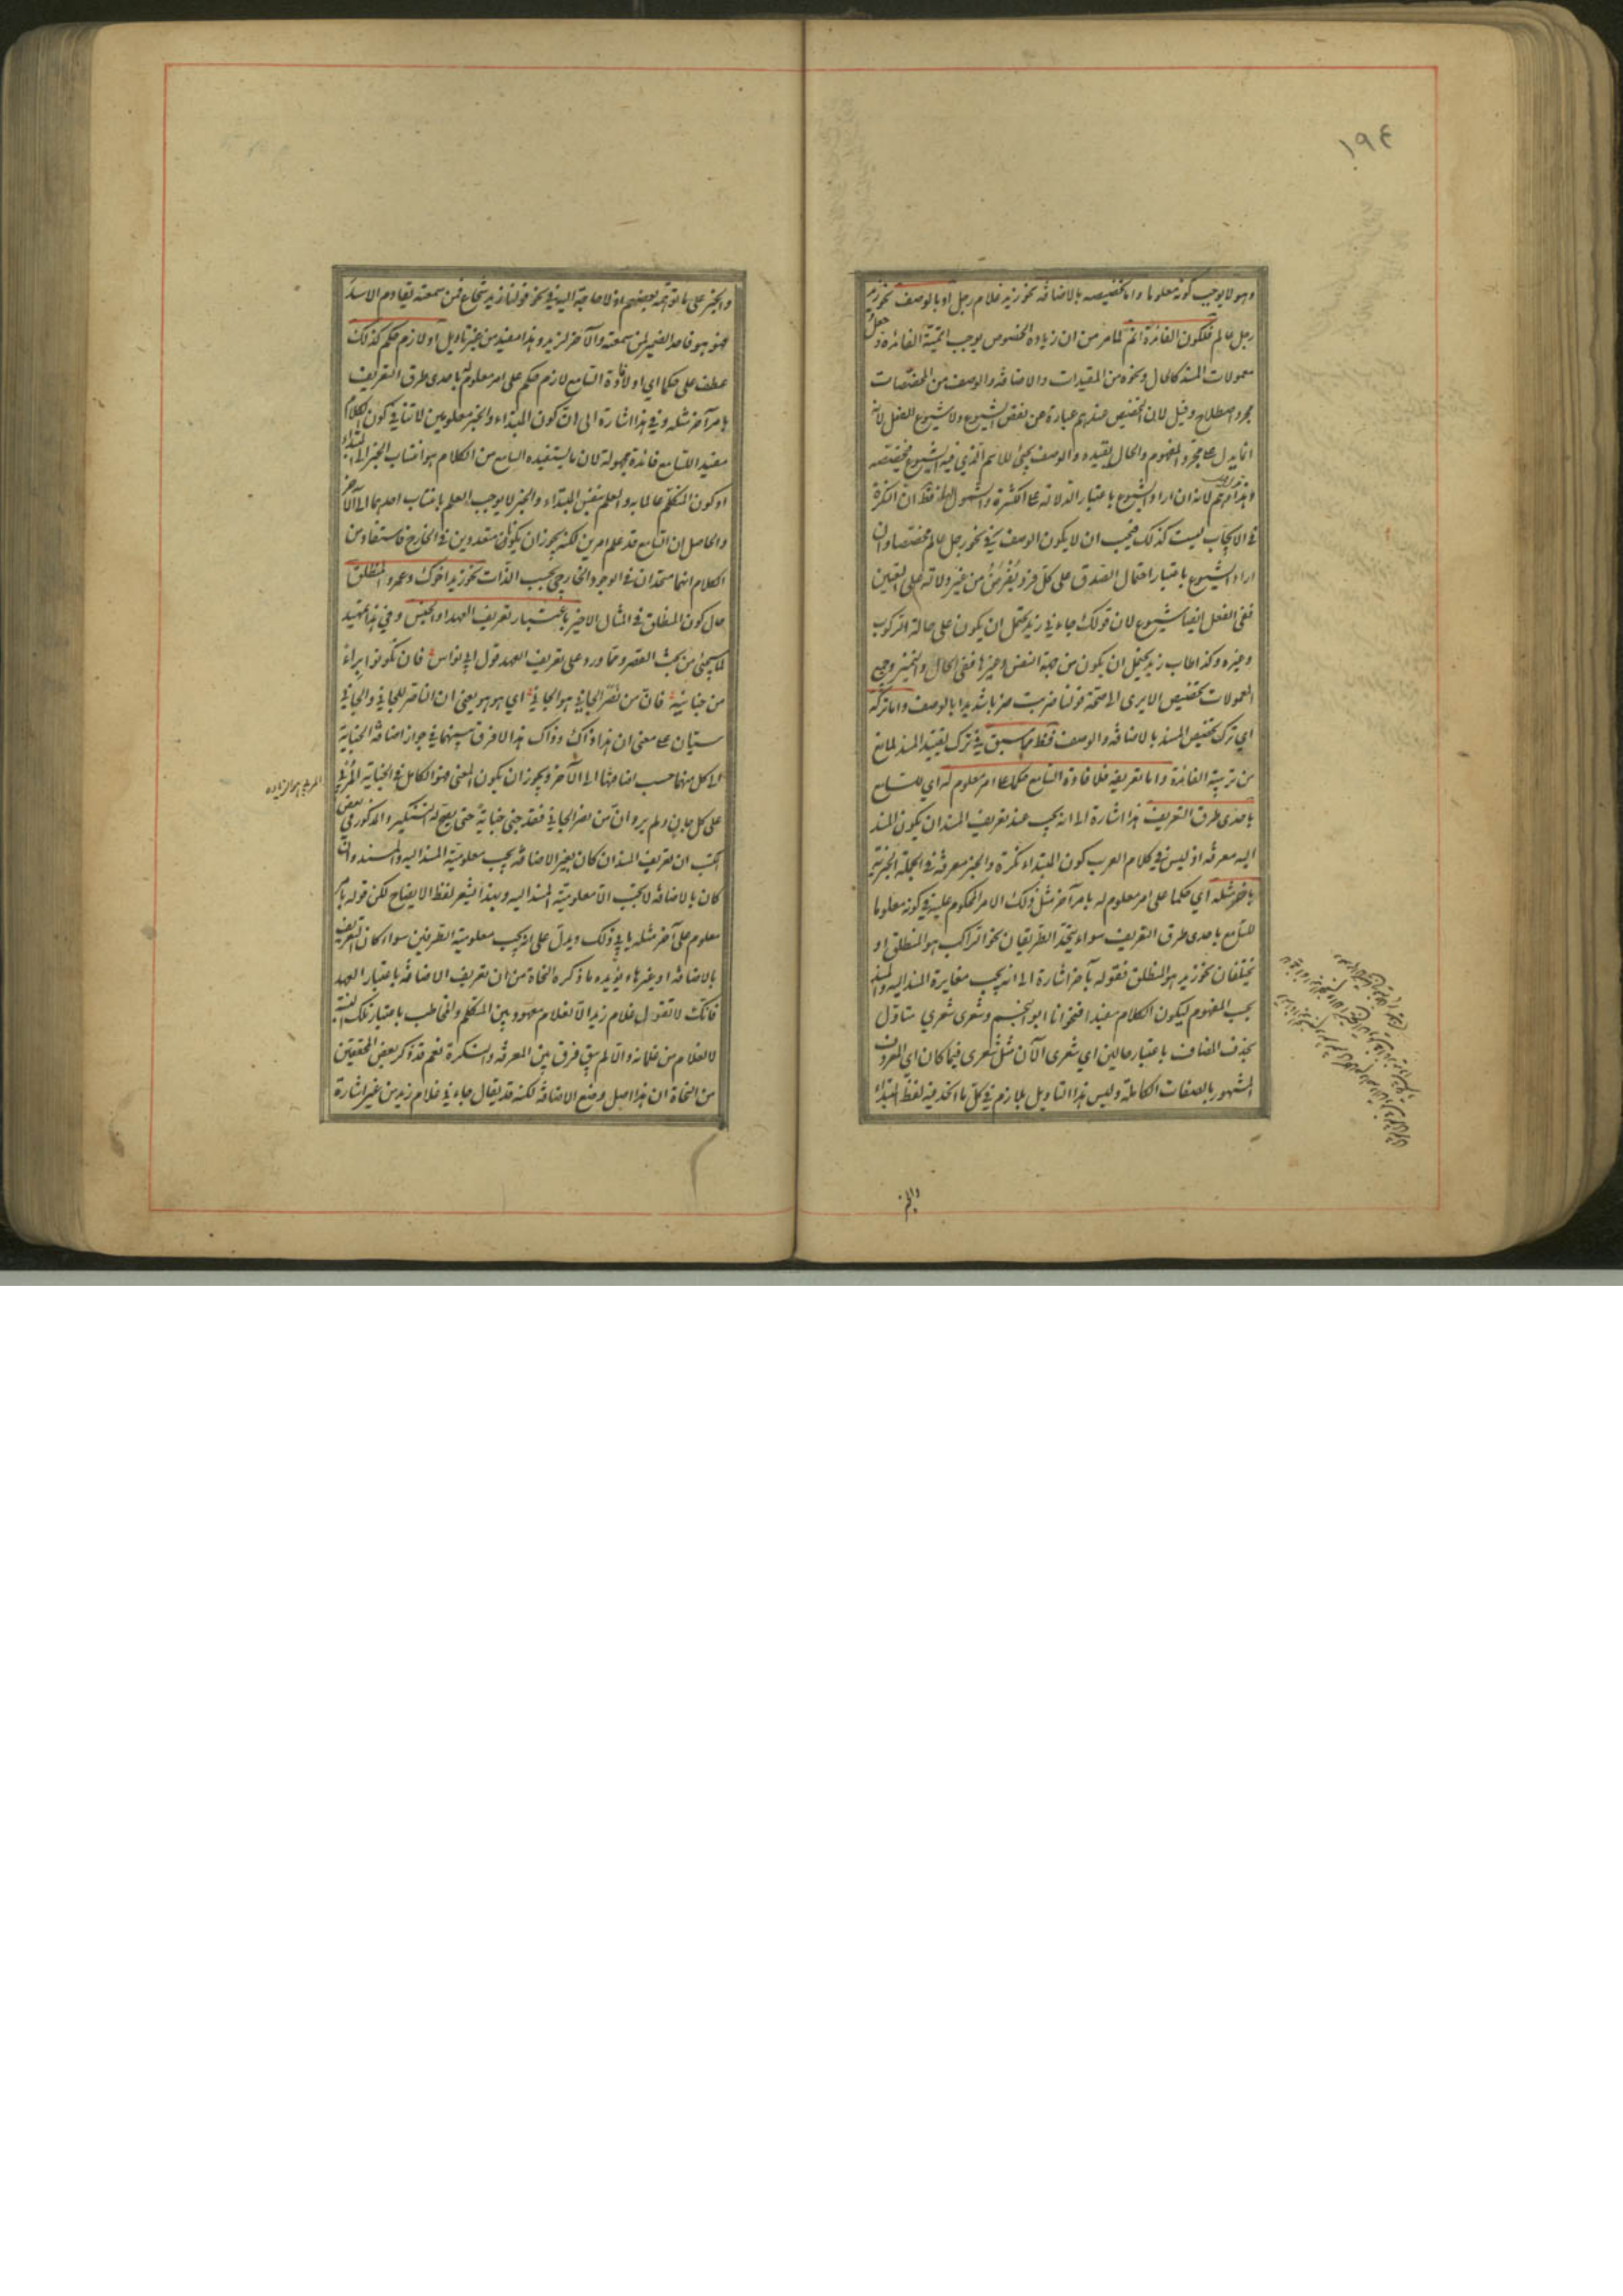 ١٩٤
وهو لا يوجب كونه معلوما واما تخصيصه بالاضافة نحو زيد غلام رجل او بالوصف نحو زيد
رجل عالم فلكون الفائدة اتم لما مر من ان زيادة الخصوص يوجب اتمية الفائدة وجعل
معمولات المسند كالحال ونحوه من المقيدات والاضافة والوصف من المخصصات
مجرد اصطلاح وقيل لان التخصيص عندهم عبارة عن نقص الشيوع ولا شيوع للفعل لانه
انما يدل على مجرد المفهوم والحال يقيده والوصف يجئ للاسم الذي فيه الشيوع فيخصصه
وهذا وهم لانه ان اراد الشيوع باعتبار الدلالة على الكثرة والشمول فظ ان النكرة
في الايجاب ليست كذلك فيجب ان لا يكون الوصف في نحو رجل عالم مخصصا وان
اراد الشيوع باعتبار احتمال الصدق على كل فرد يفرض من غير دلالة على التعيين
ففي الفعل ايضا شيوع لان قولك جاءني زيد يحتمل ان يكون على حالة الركوب
وغيره وكذا طاب زيد يحتمل ان يكون من جهة النفس وغيرها ففي الحال والتمييز وجميع
المعمولات تخصيص الا يرى الى صحة قولنا ضربت ضربا شديدا بالوصف واما تركه
اي ترك تخصيص المسند بالاضافة والوصف فظ مما سبق في ترك تقييد المسند لمانع
من تربية الفائدة واما تعريفه فلافادة السامع حكما على امر معلوم له اي للسامع
باحدى طرق التعريف هذا اشارة الى انه يجب عند تعريف المسند ان يكون المسند
اليه معرفة اذ ليس في كلام العرب كون المبتداء نكرة والخبر معرفة في الجملة الخبرية
باخر مثله اي حكما على امر معلوم له بامر آخر مثل ذلك الامر المحكوم عليه في كونه معلوما
للسامع باحدى طرق التعريف سواء يتحد الطريقان نحو الراكب هو المنطلق او
يختلفان نحو زيد هو المنطلق فقوله بآخر اشارة الى انه يجب مغايرة المسند اليه والمسند
بحسب المفهوم ليكون الكلام مفيدا فنحو انا ابو النجم وشعري شعري متأول
بحذف المضاف باعتبار حالين اي شعري الآن مثل شعري فيما كان اي المعروف
المشهور بالصفات الكاملة وليس هذا التاويل بلازم في كل ما اتحد فيه لفظ المبتداء
والخبر
والخبر على ما توهمه بعضهم اذ لا حاجة اليه في نحو قولنا زيد شجاع فمن سمعته يقاوم الاسد
فهو هو فاحد الضميرين لمن سمعته والآخر لزيد وهذا مفيد من غير تاويل او لازم حكم كذلك
عطف على حكما اي او لافادة السامع لازم حكم على امر معلوم له باحدى طرق التعريف
بامر آخر مثله وفي هذا اشارة الى ان كون المبتداء والخبر معلومين لا تنافي كون الكلام
مفيدا للسامع فائدة مجهولة لان ما يستفيده السامع من الكلام هو انتساب الخبر الى المبتداء
او كون المتكلم عالما به والعلم بنفس المبتداء والخبر لا يوجب العلم بانتساب احدهما الى الآخر
والحاصل ان السامع قد علم امرين لكنه يجوز ان يكونا متعددين في الخارج فاستفاد من
الكلام انهما متحدان في الوجود الخارجي بحسب الذات نحو زيد اخوك وعمرو المنطلق
حال كون المنطلق في المثال الاخير باعتبار تعريف العهد او الجنس وفي هذا تمهيد
لما سيجئ من بحث القصر ومما ورد على تعريف العهد قول ابي نواس فان تكونوا براء
من جنايته فان من نصر الجاني هو الجاني اي هو هو يعني ان الناصر للجاني والجاني
سيان على معنى ان هذا ذاك وذاك هذا لا فرق بينهما في جواز اضافة الجناية
الى كل منهما حسب اضافتها الى الآخر ويجوز ان يكون المعنى فهو الكامل في الجناية المربي
على كل جان ولم يرد ان من نصر الجاني فقد جنى جناية حتى يصح له التنكير والمذكور في بعض
الكتب ان تعريف المسند ان كان بغير الاضافة يجب معلومية المسند اليه والمسند وان
كان بالاضافة لا يجب الا معلومية المسند اليه وبهذا يشعر لفظ الايضاح لكن قوله بامر
معلوم على آخر مثله يابى ذلك ويدل على انه يجب معلومية الطرفين سواء كان التعريف
بالاضافة او غيرها ويؤيده ما ذكره النحاة من ان تعريف الاضافة باعتبار العهد
فانك لا تقول غلام زيد الا لغلام معهود بين المتكلم والمخاطب باعتبار تلك النسبة
لا لغلام من غلمانه والا لم يبق فرق بين المعرفة والنكرة نعم قد ذكر بعض المحققين
من النحاة ان هذا اصل وضع الاضافة لكنه قد يقال جاءني غلام زيد من غير اشارة